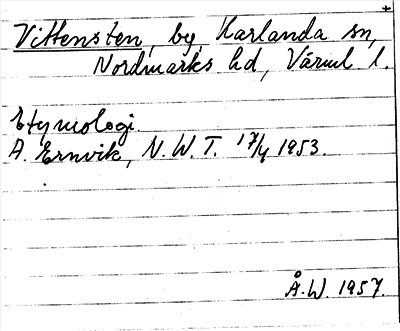 Vittensten, by, Karlanda sn,
Nordmarks hd, Värml l.
Etymologi.
A. Ernvik, N.W.T. 17/4 1953.
Å.W. 1957.